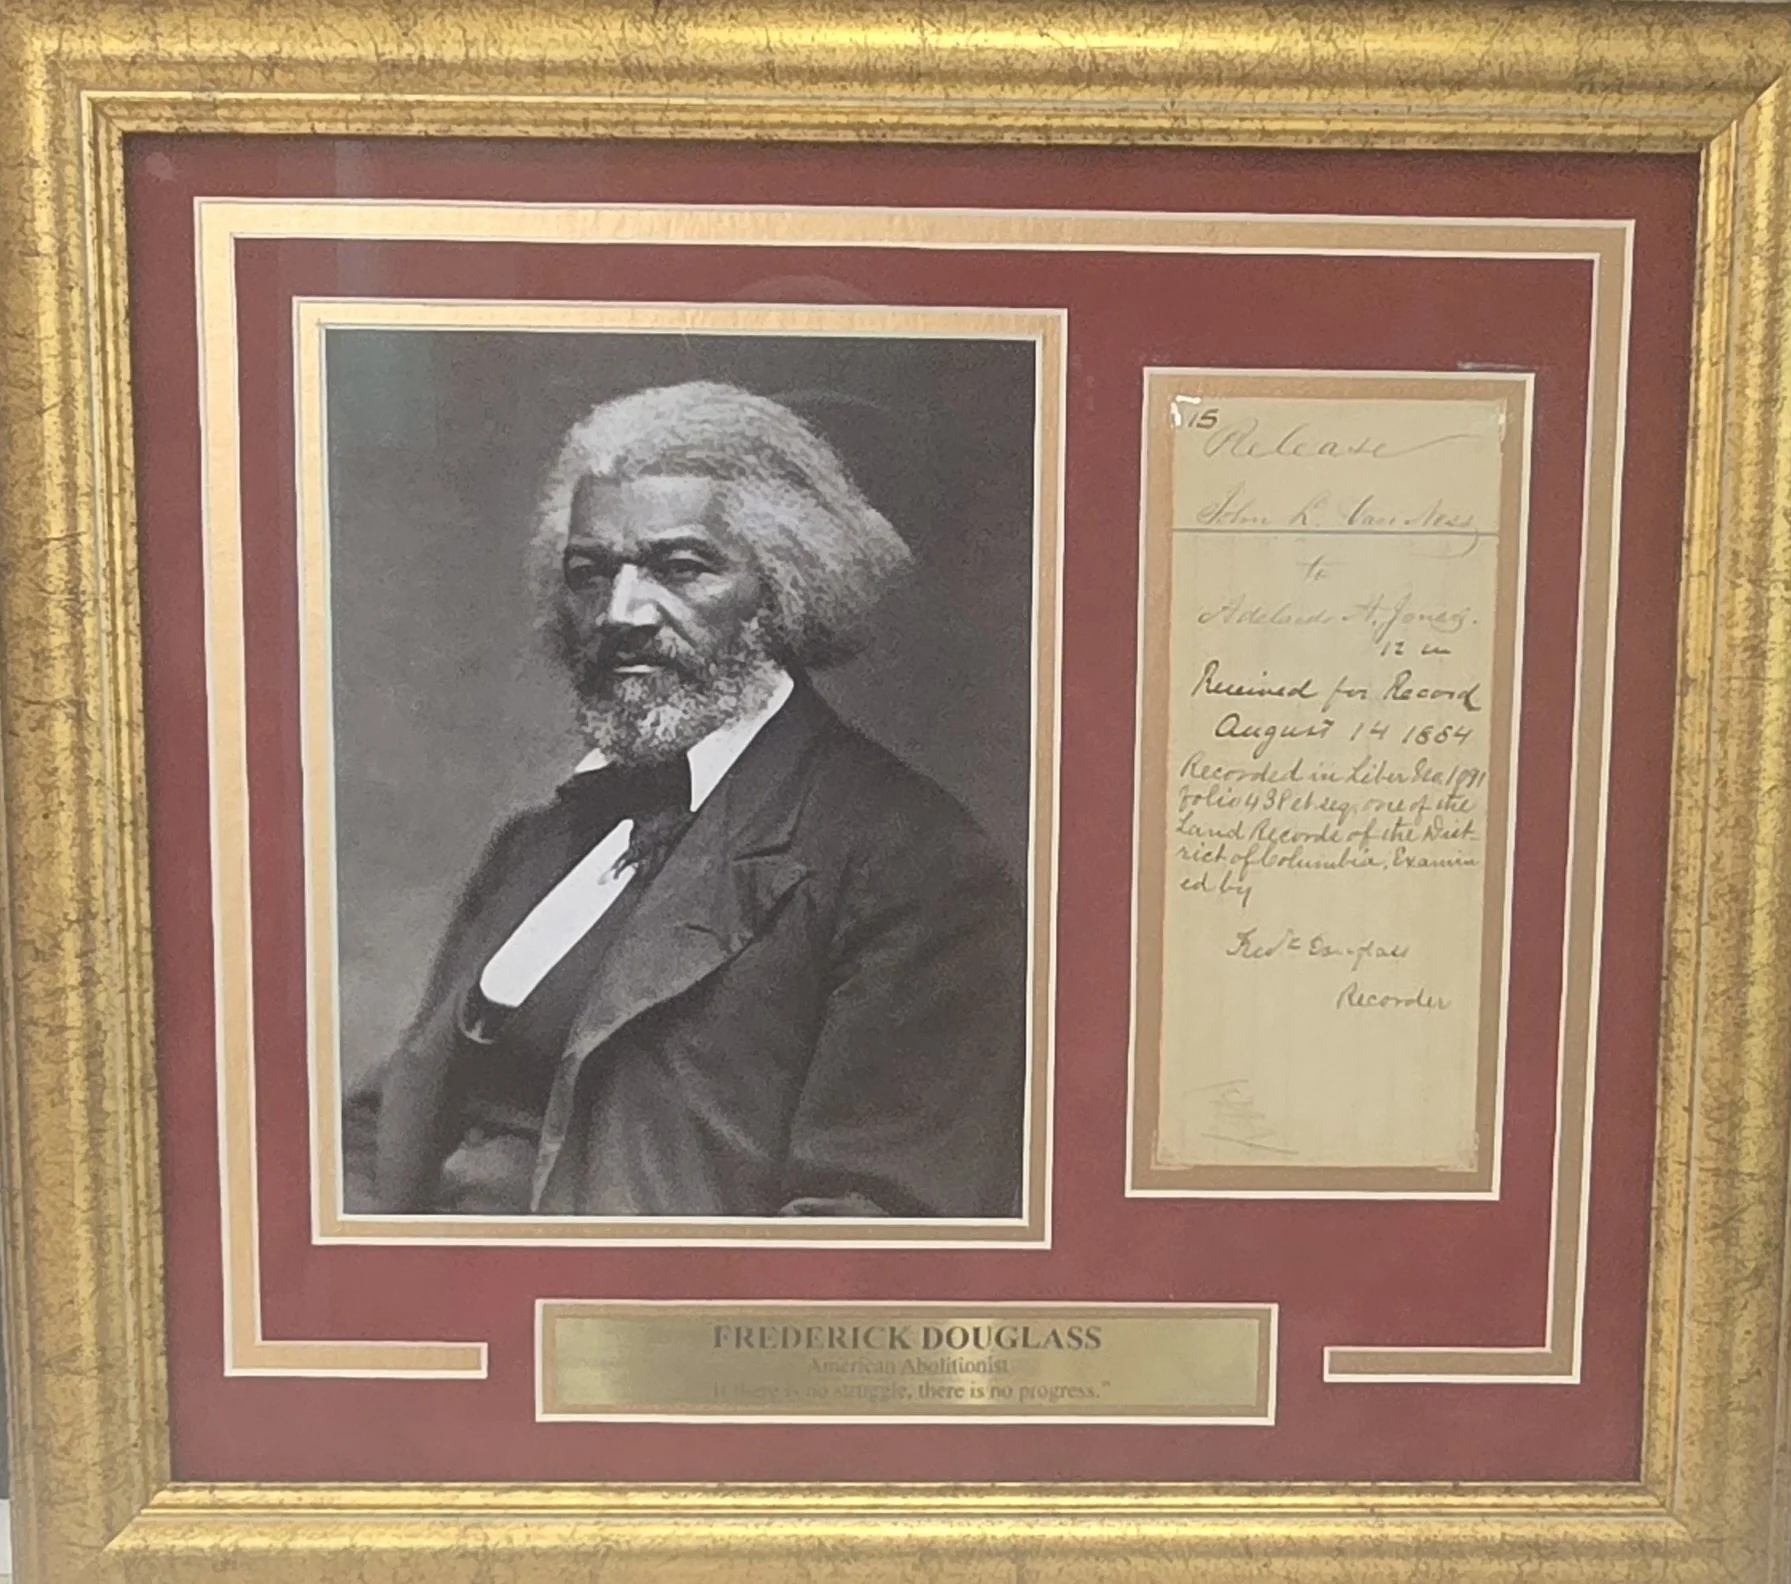 15
Release
John L. Van Ness
to
Adelaide H. Jones.
12 m
Received for Record
August 14 1884
Recorded in Liber No. 1091
folio 438 et seq, one of the
Land Records of the Dist-
rict of Columbia, Examin
ed by
Fredk Douglass
Recorder
FREDERICK DOUGLASS
American Abolitionist
"If there is no struggle, there is no progress."